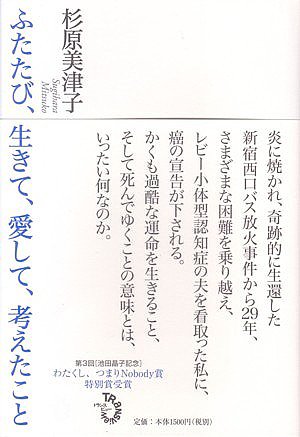 杉原美津子
Sugihara
Mitsuko
ふたたび、生きて、愛して、考えたこと
炎に焼かれ、奇跡的に生還した
新宿西口バス放火事件から29年、
さまざまな困難を乗り越え、
レビー小体型認知症の夫を看取った私に、
癌の宣告が下される。
かくも過酷な運命を生きること、
そして死んでゆくことの意味とは、
いったい何なのか。
第3回[池田晶子記念]
わたくし、つまりNobody賞
特別賞受賞
TRANS
VIEW
トランスビュー
定価：本体1500円(税別)